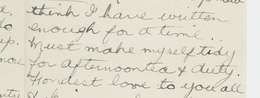 think I have written
enough for a time..
Must make myself tidy
for afternoontea & duty.
Fondest love to you all